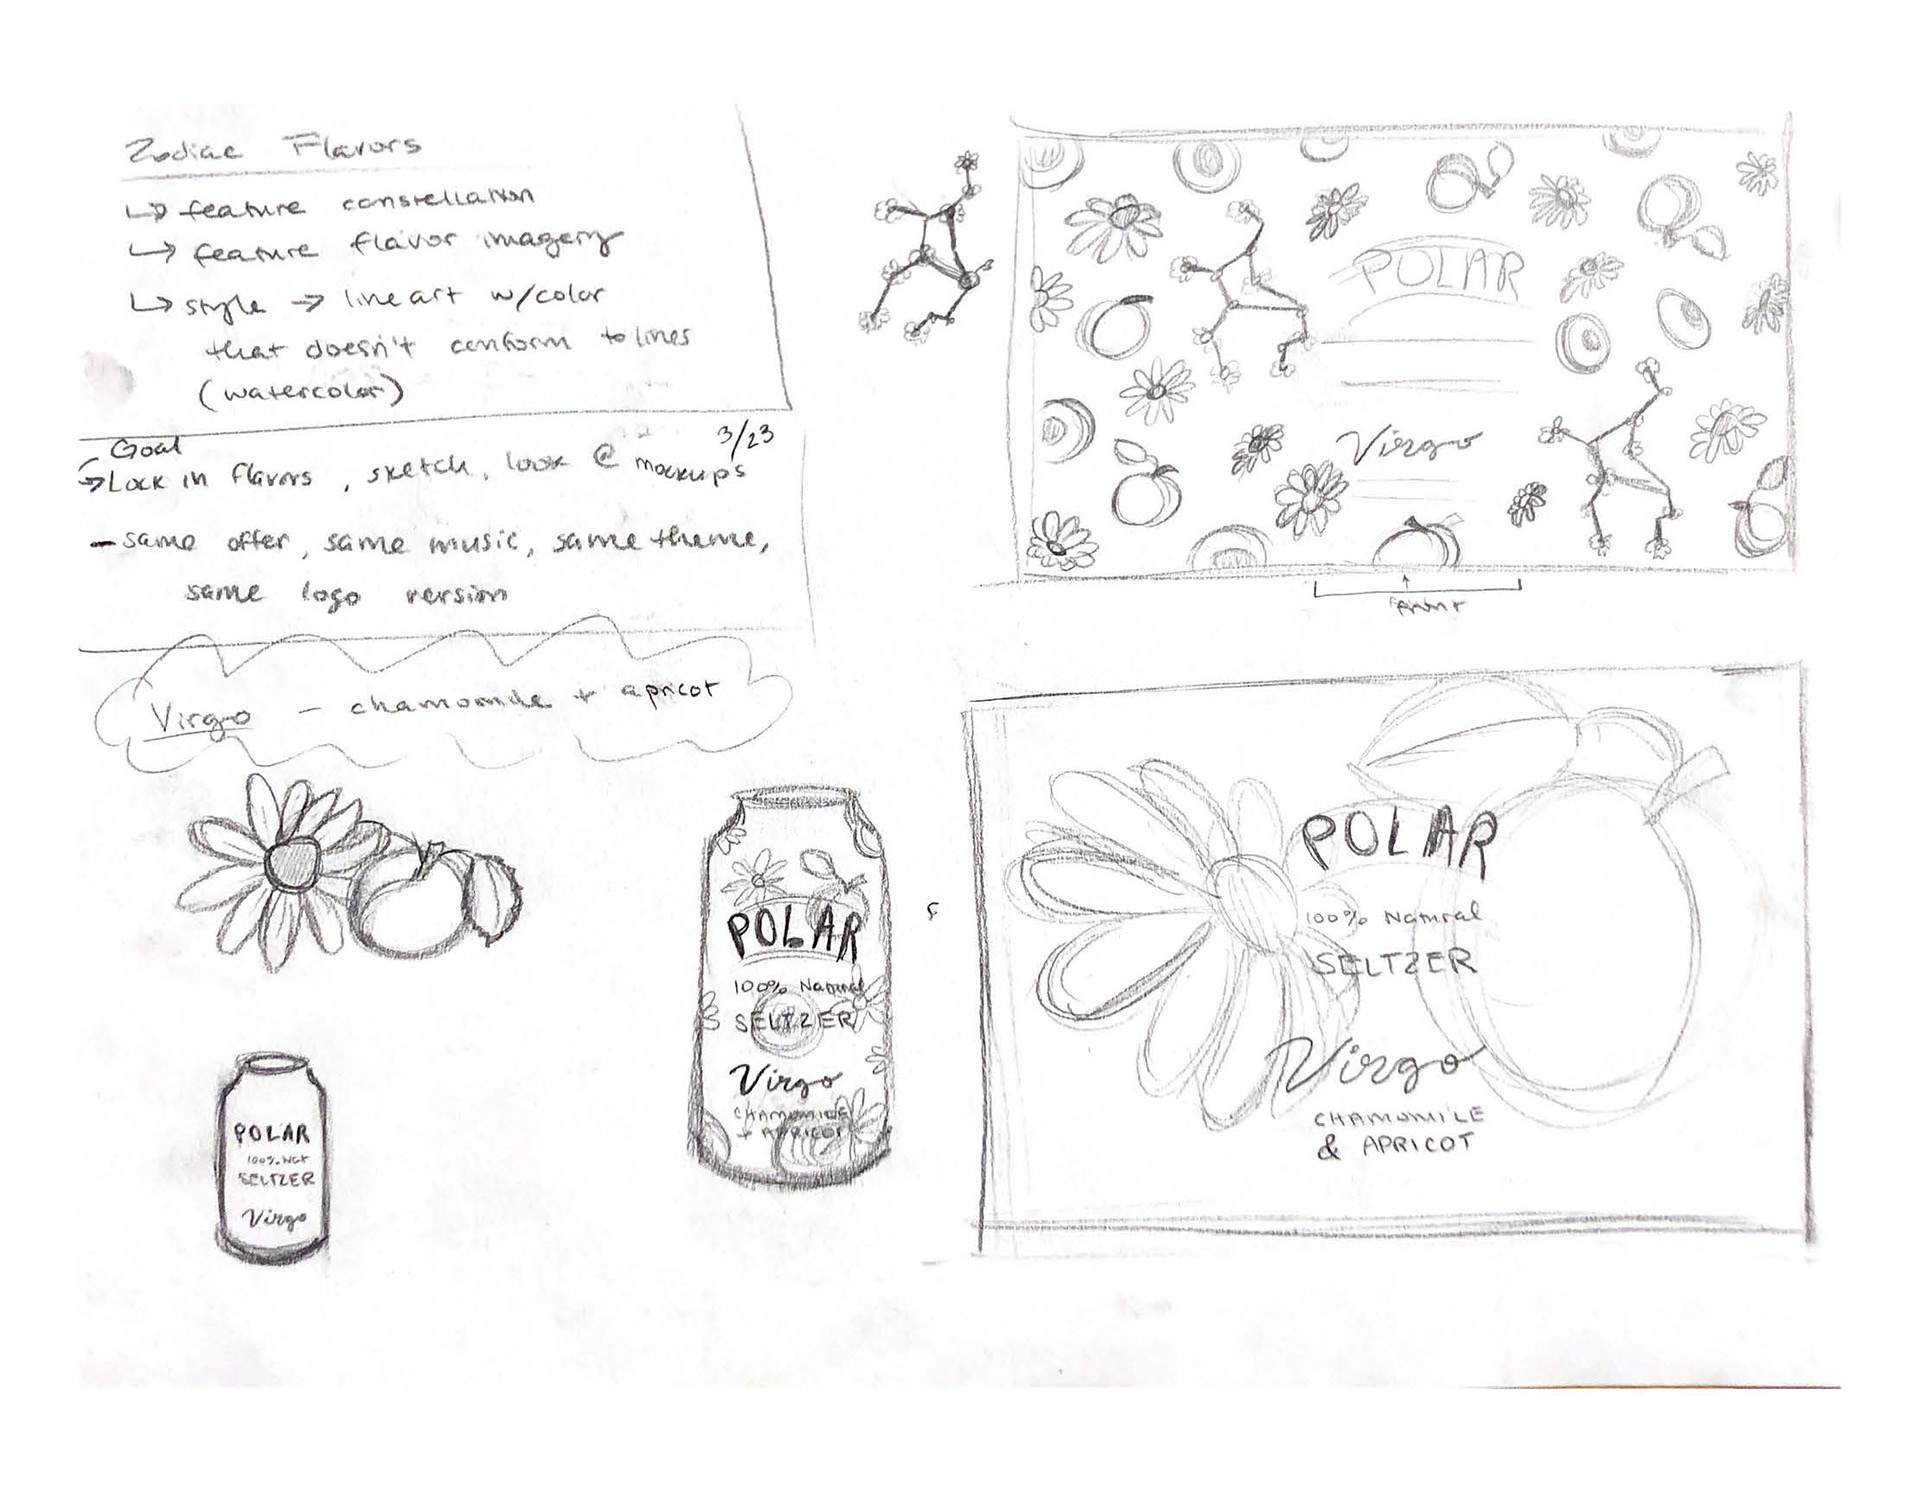 Zodiac Flavors
↳ feature constellation
↳ feature flavor imagery
↳ style → line art w/color
that doesn't conform to lines
(watercolor)
Goal 3/23
→ Lock in flavors, sketch, look @ mockups
- same offer, same music, same theme,
same logo version
Virgo - chamomile + apricot
POLAR
100% Nat
SELTZER
Virgo
POLAR
100% Natural
SELTZER
Virgo
CHAMOMILE
+ APRICOT
POLAR
Virgo
POLAR
100% Natural
SELTZER
Virgo
CHAMOMILE
& APRICOT